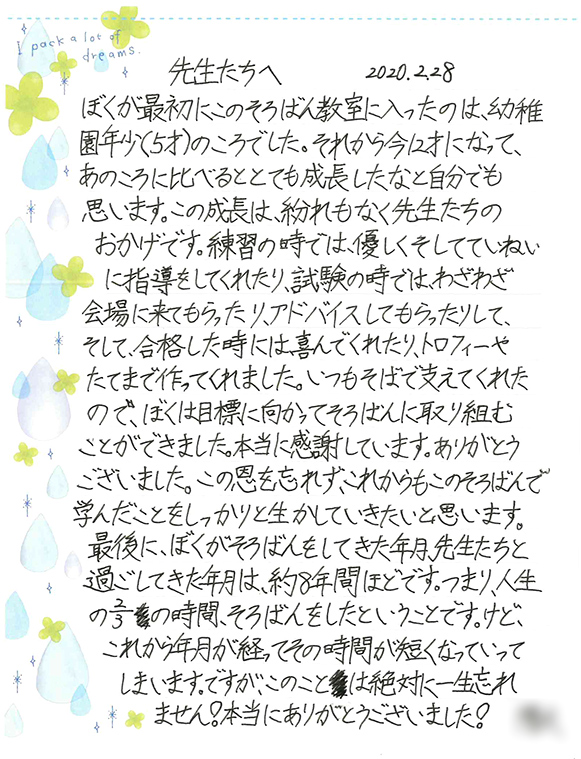 I pack a lot of
dreams.
先生たちへ 2020.2.28
ぼくが最初にこのそろばん教室に入ったのは、幼稚
園年少(5才)のころでした。それから今12才になって、
あのころに比べるととても成長したなと自分でも
思います。この成長は、紛れもなく先生たちの
おかげです。練習の時では、優しくそしてていねい
に指導をしてくれたり、試験の時では、わざわざ
会場に来てもらったり、アドバイスしてもらったりして、
そして、合格した時には、喜んでくれたり、トロフィーや
たてまで作ってくれました。いつもそばで支えてくれた
ので、ぼくは目標に向かってそろばんに取り組む
ことができました。本当に感謝しています。ありがとう
ございました。この恩を忘れず、これからもこのそろばんで
学んだことをしっかりと生かしていきたいと思います。
最後に、ぼくがそろばんをしてきた年月、先生たちと
過ごしてきた年月は、約8年間ほどです。つまり、人生
の2/3の時間、そろばんをしたということです。けど、
これから年月が経ってその時間が短くなっていって
しまいます。ですが、このことは絶対に一生忘れ
ません!本当にありがとうございました!